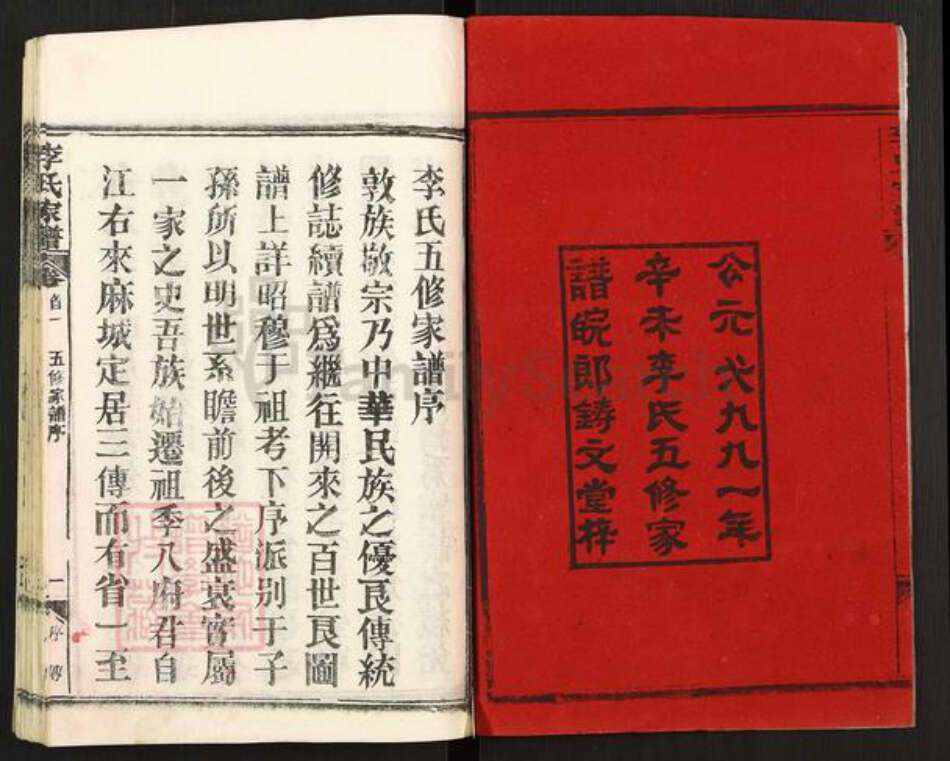 公元一九九一年
辛未李氏五修家
譜皖郎鑄文堂梓
李氏五修家譜序
敦族敬宗乃中華民族之優良傳統
修誌續譜為繼往開來之百世良圖
譜上詳昭穆于祖考下序派別于子
孫所以明世系瞻前後之盛衰實屬
一家之史吾族始遷祖季八府君自
江右來麻城定居三傳而有省一至
李氏家譜 卷首一 五修家譜序 一